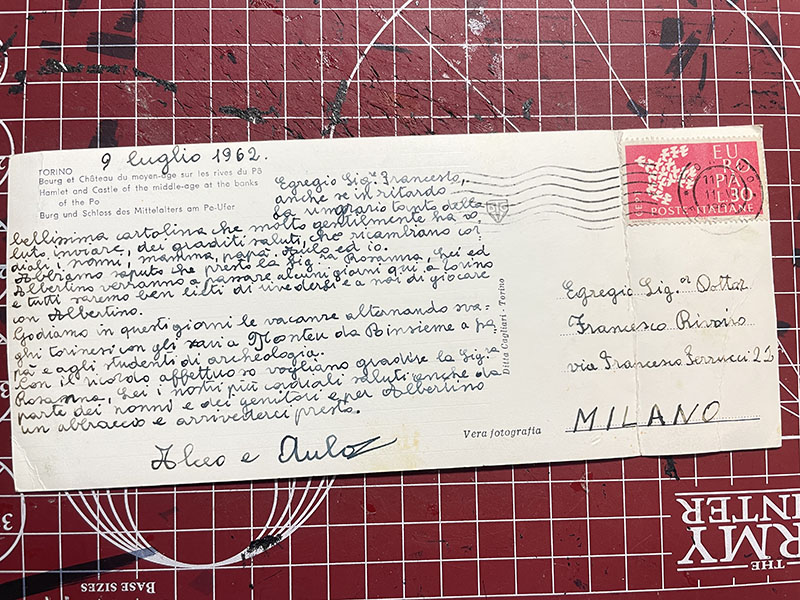 TORINO
Bourg et Château du moyen-age sur les rives du Pô
Hamlet and Castle of the middle-age at the banks
of the Po
Burg und Schloss des Mittelalters am Pe-Ufer
9 luglio 1962.
Egregio Sig.re Francesco,
anche se in ritardo
La ringrazio tanto della
bellissima cartolina che molto gentilmente ha vo
luto inviare, dei graditi saluti, che ricambiano cor
diali i nonni, mamma, papà, Aulo ed io.
Abbiamo saputo che presto la Sig.ra Rosanna, Lei ed
Albertino verranno a passare alcuni giorni qui a Torino
e tutti saremo ben lieti di rivederli e a noi di giocare
con Albertino.
Godiamo in questi giorni le vacanze alternando sva=
ghi torinesi con gli scavi a Monteu da Po insieme a pa
pà e agli studenti di archeologia.
Con il ricordo affettuoso vogliano gradire la Sig.ra
Rosanna, Lei i nostri più cordiali saluti anche da
parte dei nonni e dei genitori e per Albertino
un abbraccio e arrivederci presto.
Alceo e Aulo
Ditta Cagliari - Torino
Vera fotografia
EUROPA
CEPT
L.30
POSTE ITALIANE
Egregio Sig.or Dottor
Francesco Rivoiro
via Francesco Ferrucci 2
MILANO
BASE SIZES
THE
ARMY
PAINTER
3